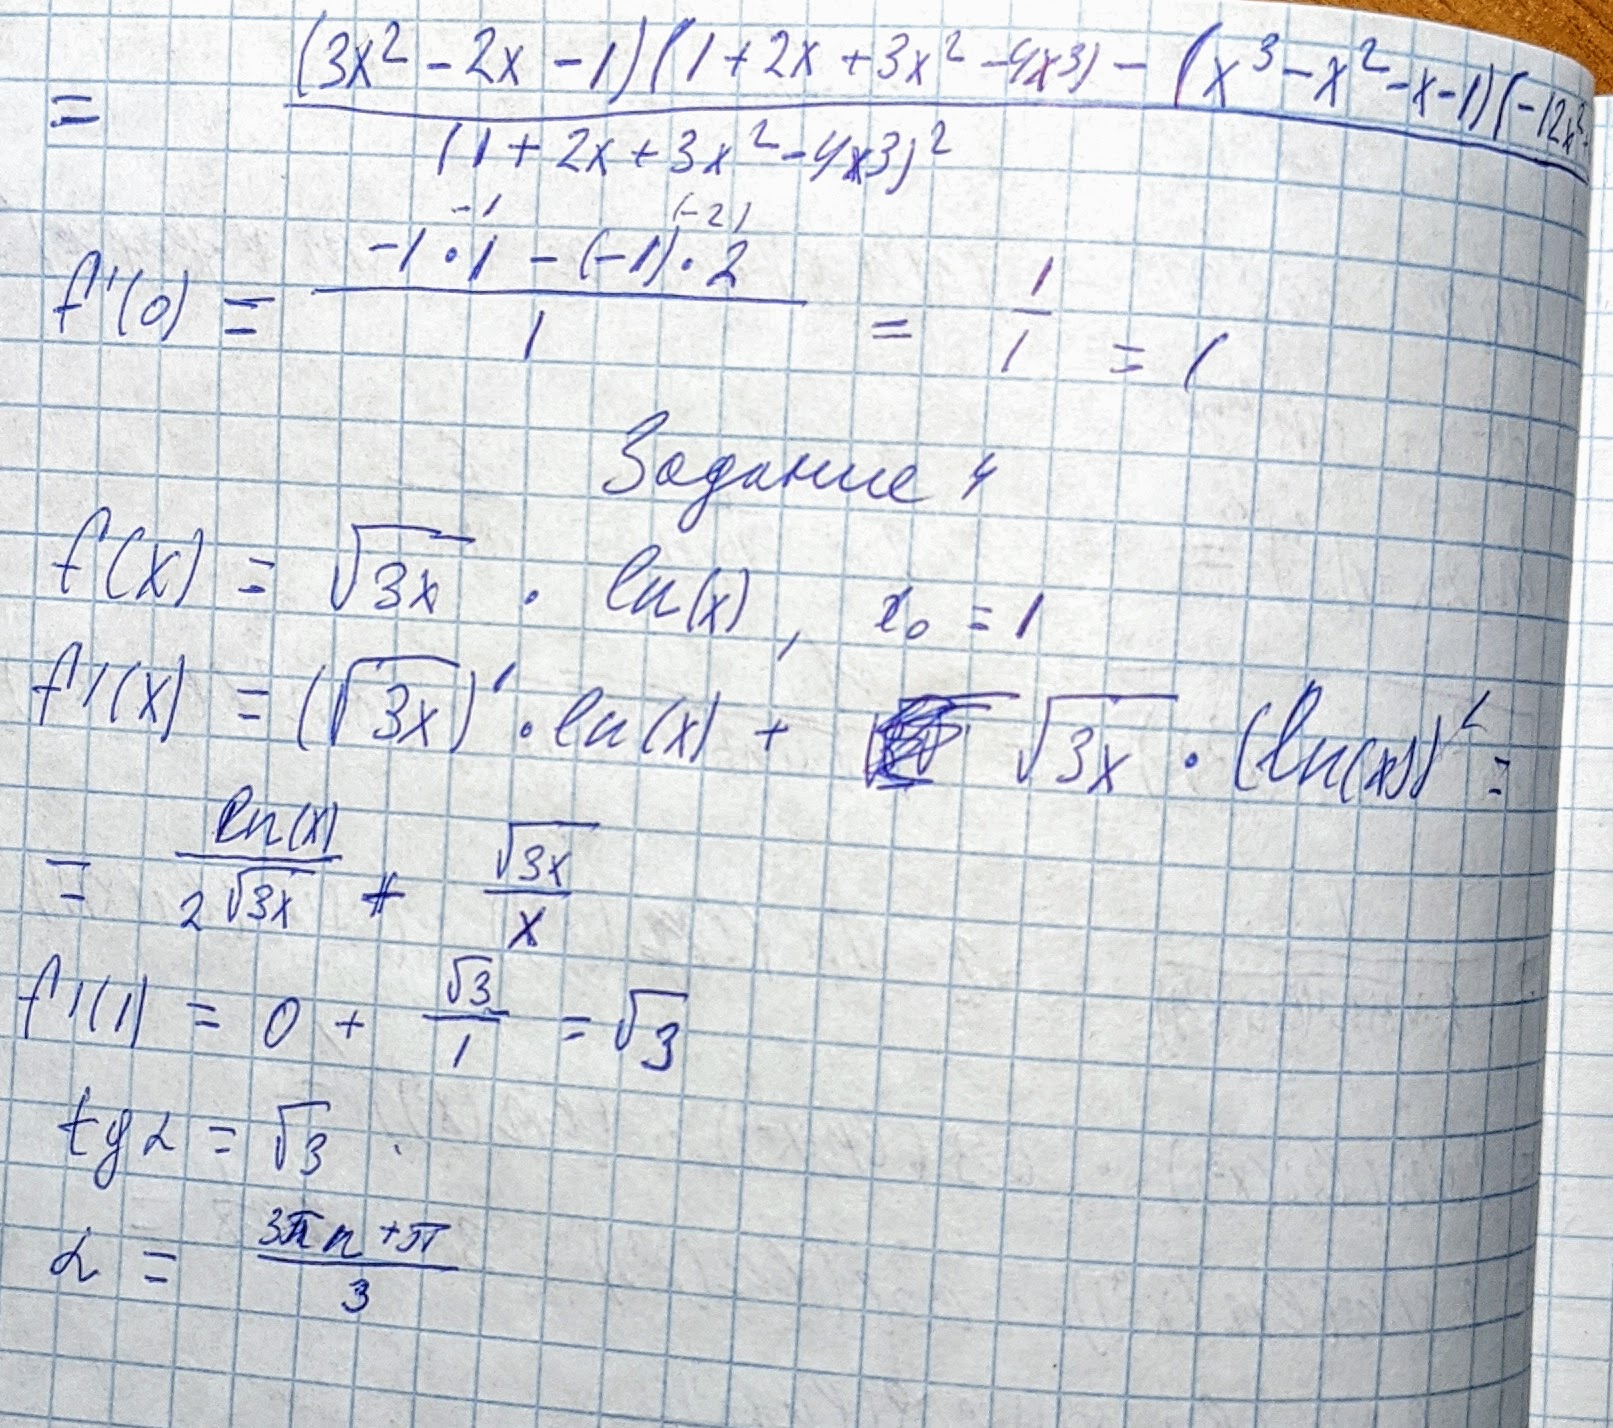 = (3x² - 2x - 1)(1 + 2x + 3x² - 4x3) - (x³ - x² - x - 1)(-12x²
(1 + 2x + 3x² - 4x3)²
-1 (-2)
f'(0) = -1 · 1 - (-1) · 2 / 1 = 1/1 = 1
Задание 4
f(x) = √3x · ln(x), x₀ = 1
f'(x) = (√3x)' · ln(x) + √3x · (ln(x))' =
= ln(x) / 2√3x + √3x / x
f'(1) = 0 + √3/1 = √3
tg α = √3
α = 3πn + π / 3